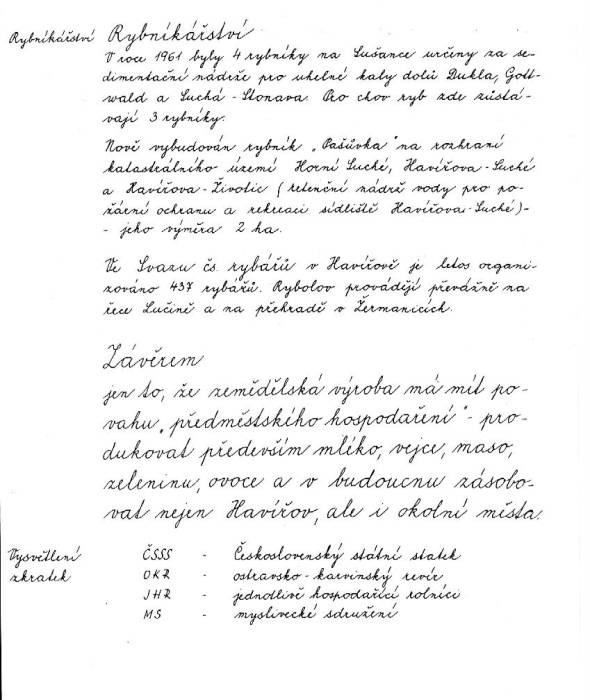 Rybníkářství Rybníkářství
V roce 1961 byly 4 rybníky na Sušance určiny za se-
dimentační nádrže pro uhelné kaly dolů Dukla, Gott-
wald a Suchá-Stonava. Pro chov ryb zde zůstá-
vají 3 rybníky.
Nově vybudován rybník „Pašůvka" na rozhraní
katastrálního území Horní Suché, Havířova-Suché
a Havířova-Životic (retenční nádrž vody pro po-
žární ochranu a rekreaci sídliště Havířova-Suché)-
- jeho výměra 2 ha.
Ve Svazu čs. rybářů v Havířově je letos organi-
zováno 437 rybářů. Rybolov provádějí převážně na
řece Lučině a na přehradě v Žermanicích.
Závěrem
jen to, že zemědělská výroba má mít po-
vahu „předměstského hospodaření" - pro-
dukovat především mléko, vejce, maso,
zeleninu, ovoce a v budoucnu zásobo-
vat nejen Havířov, ale i okolní města.
Vysvětlení ČSSS - Československý státní statek
zkratek OKR - ostravsko-karvinský revír
JHR - jednotlivě hospodařící rolníci
MS - myslivecké sdružení